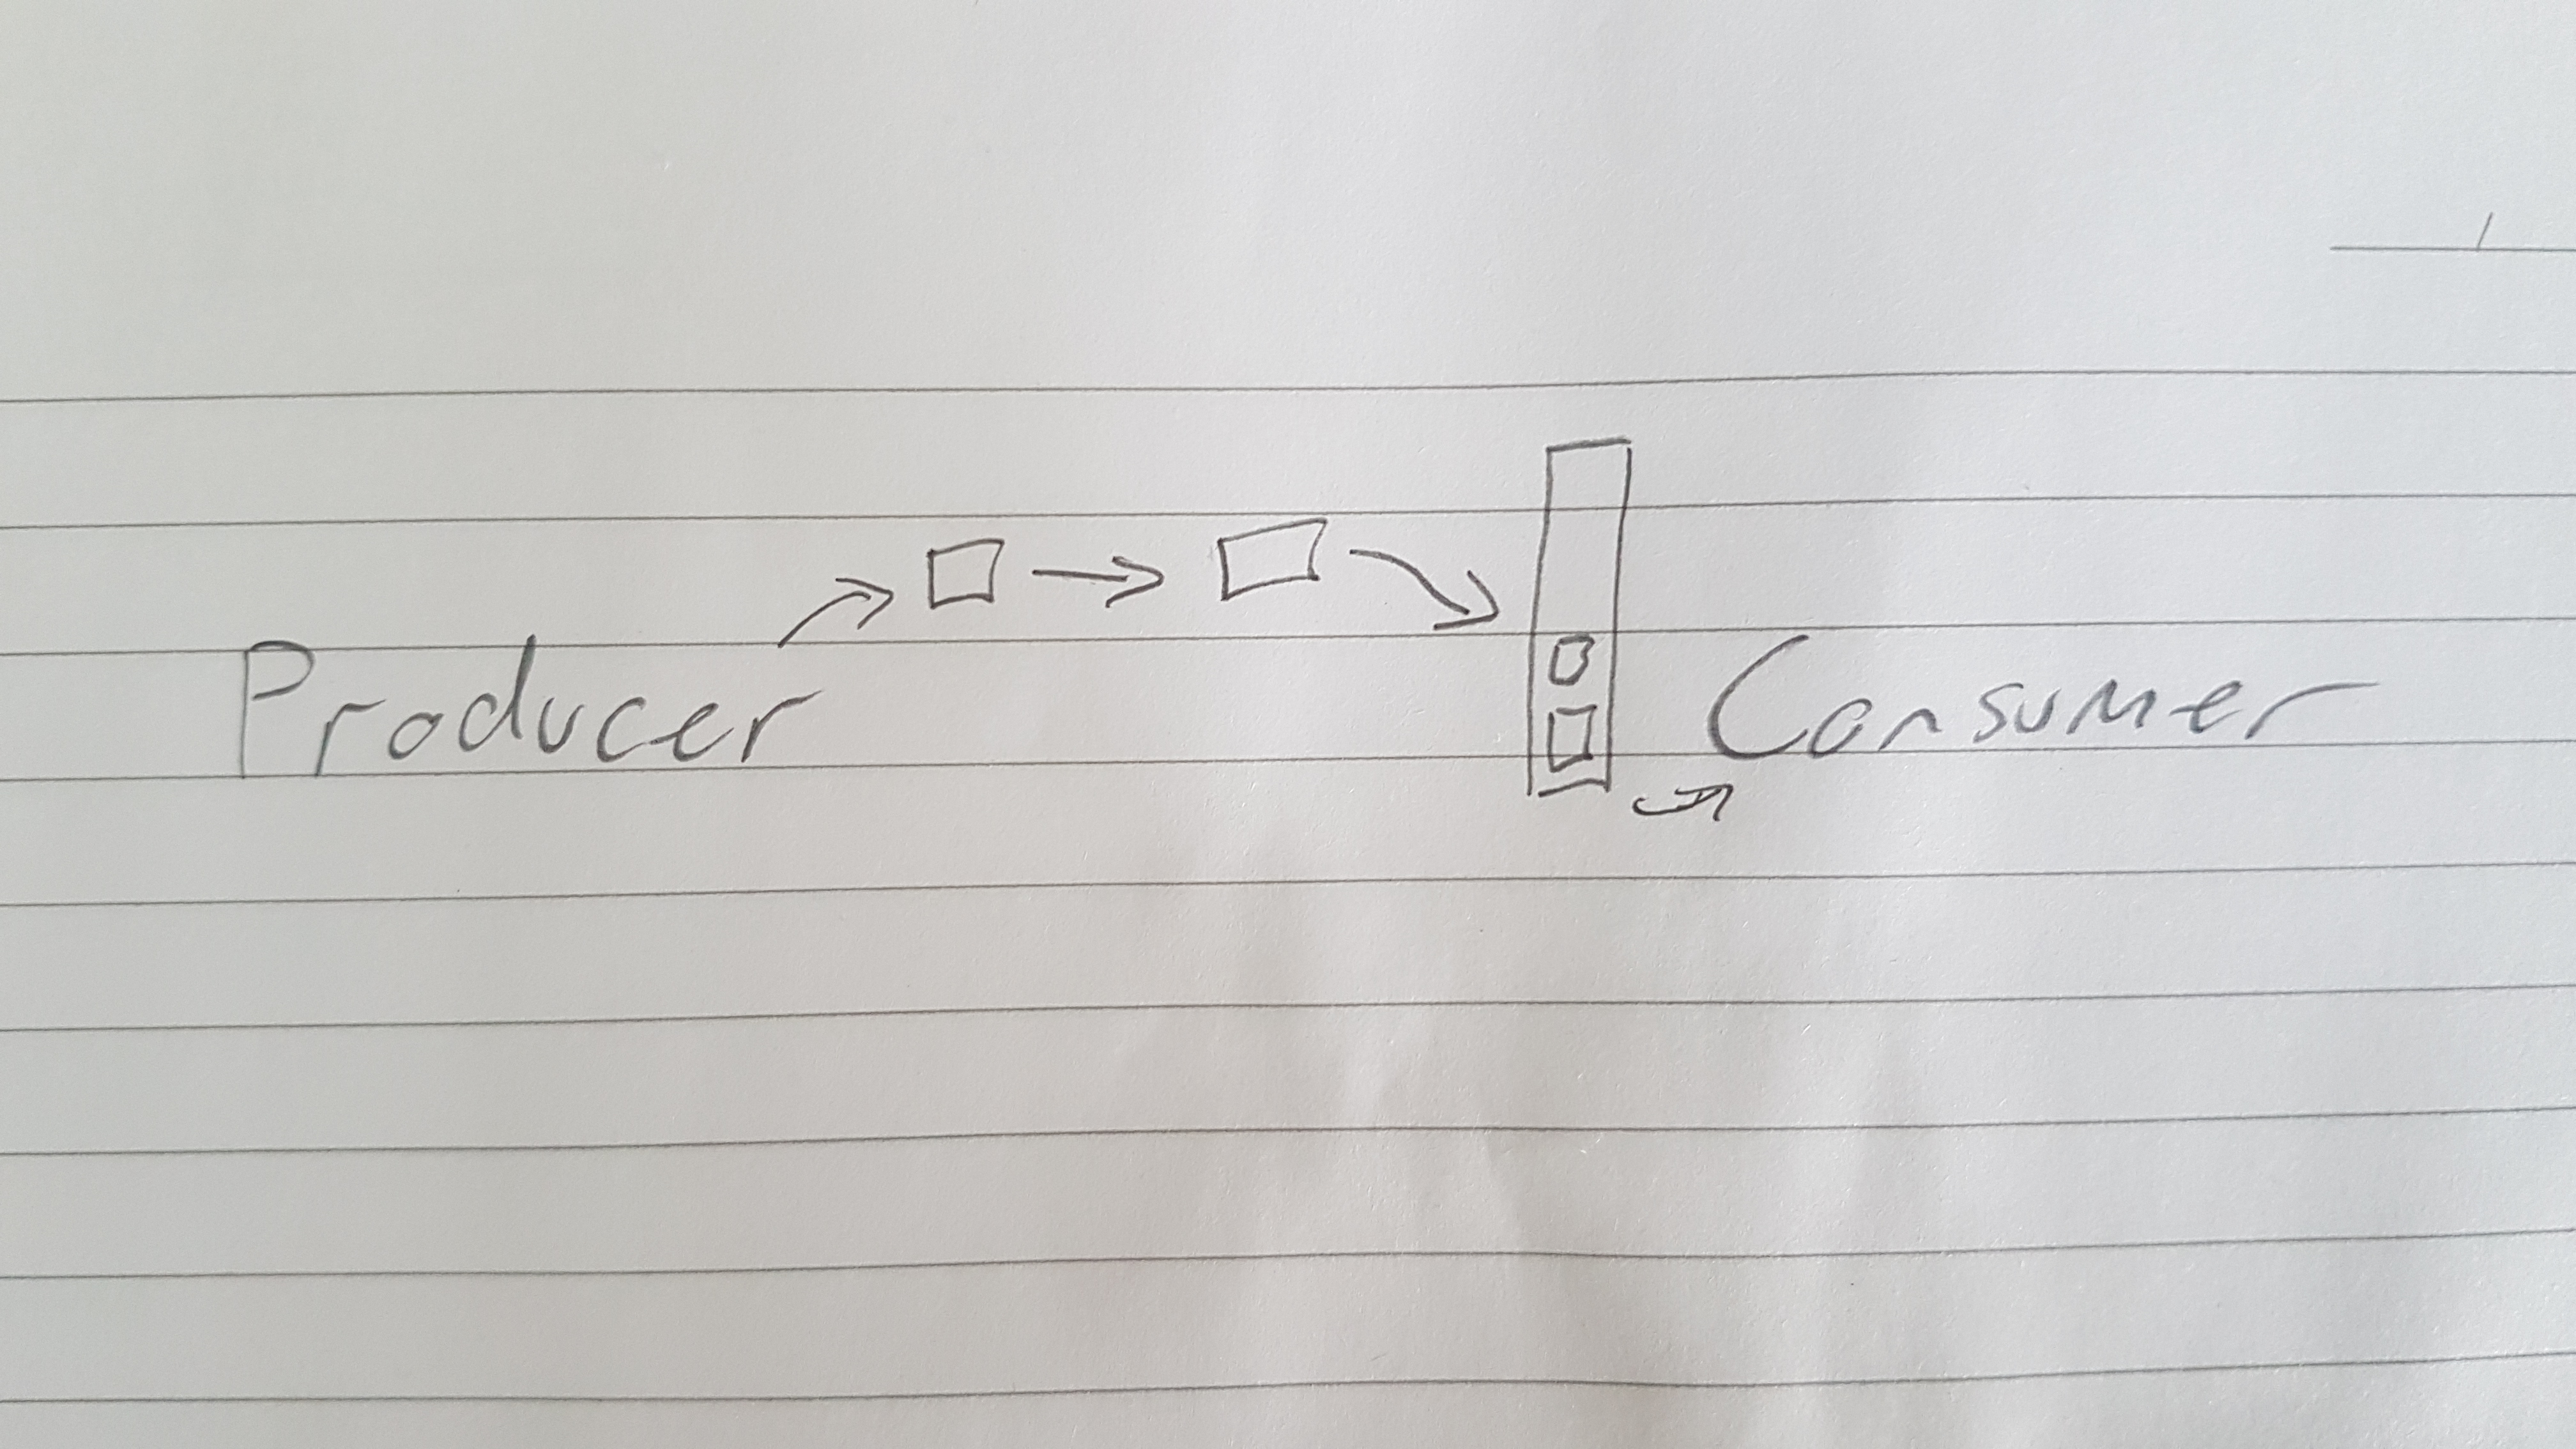 Producer Consumer